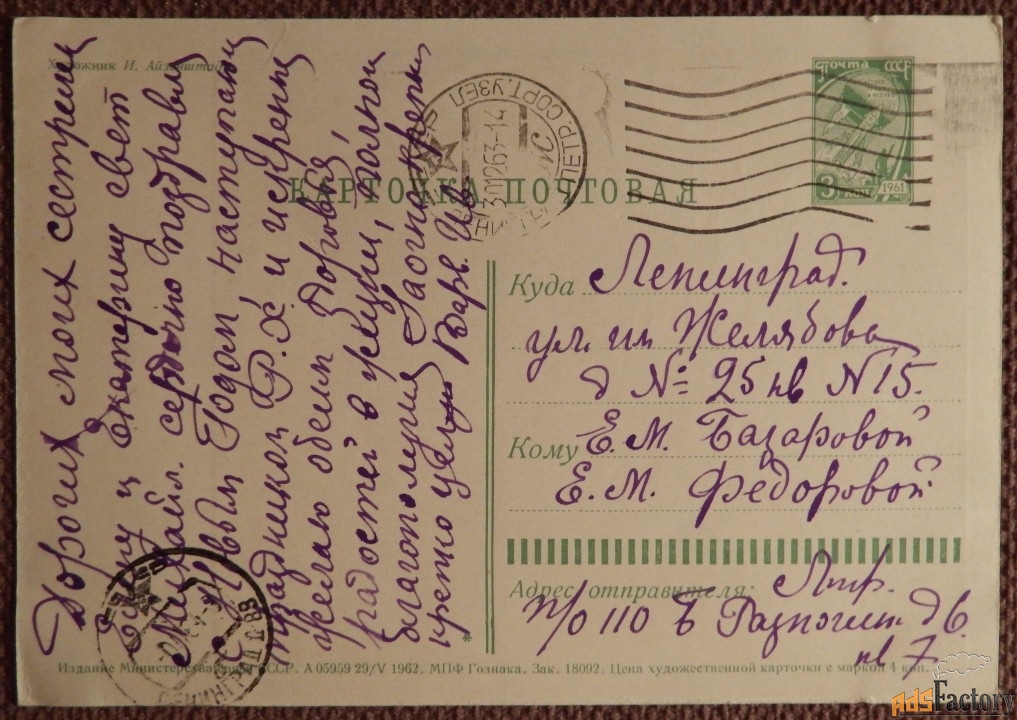 Художник И. Айзенштад
Дорогих моих сестриц
Елену и Екатерину свет
Михайл. сердечно поздравляю
с Новым Годом, наступающ
праздником Р.Х и искренне
желаю обеим здоровья,
радостей в жизни, полного
благополучия Заочно крепко
крепко целую Варв. Ив.
ПОЧТА СССР
3 коп
1961
КАРТОЧКА ПОЧТОВАЯ
СОРТ. УЗЕЛ
301263-14
Куда Ленинград.
ул. им Желябова
д № 25 кв N 15.
Кому Е.М. Базаровой
Е.М. Федоровой
Адрес отправителя:
п/о 110 Б Разночин. д 6.
кв 7
Издание Министерства СССР. А 05959 29/V 1962. МПФ Гознака. Зак. 18092. Цена художественной карточки с маркой 4 коп.
AdsFactory